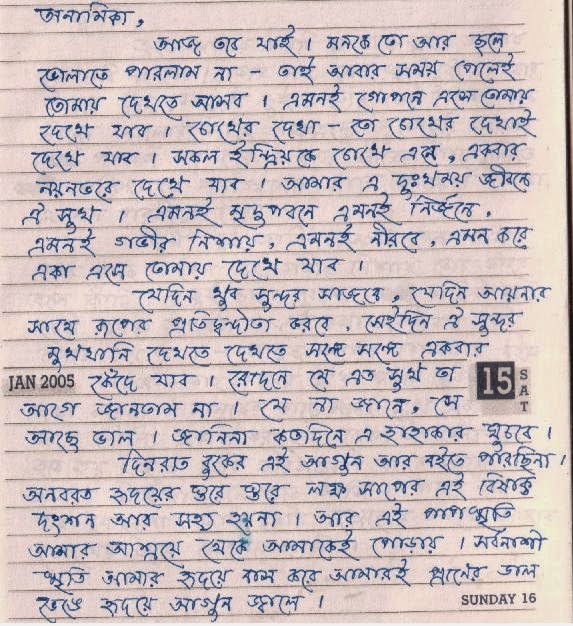 অনামিকা,
আজ তবে যাই । মনকে তো আর ছলে
ভোলাতে পারলাম না – তাই আবার সময় পেলেই
তোমায় দেখতে আসব । এমনই গোপনে এসে তোমায়
দেখে যাব । চোখের দেখা – তো চোখের দেখাই
দেখে যাব । সকল ইন্দ্রিয়কে চোখে এনে, একবার
নয়নভরে দেখে যাব । আমার এ দুঃখময় জীবনে
ঐ সুখ । এমনই মৃদুপবনে এমনই নির্জনে,
এমনই গভীর নিশায়, এমনই নীরবে, এমন করে
একা এসে তোমায় দেখে যাব ।
যেদিন খুব সুন্দর সাজবে, যেদিন আয়নার
সাথে রূপের প্রতিদ্বন্দীতা করবে, সেইদিন ঐ সুন্দর
মুখখানি দেখতে দেখতে সঙ্গে সঙ্গে একবার
JAN 2005 কেঁদে যাব । রোদনে যে এত সুখ তা 15 SAT
আগে জানতাম না । যে না জানে, সে
আছে ভাল । জানিনা কতদিনে এ হাহাকার ঘুচবে ।
দিনরাত বুকের এই আগুন আর বইতে পারছিনা ।
অনবরত হৃদয়ের স্তরে স্তরে লক্ষ সাপের এই বিষাক্ত
দংশন আর সহ্য হয়না । আর এই পাপস্মৃতি
আমার আশ্রয়ে থেকে আমাকেই পোড়ায় । সর্বনাশী
স্মৃতি আমার হৃদয়ে বাস করে আমারই প্রাণের ডাল
ভেঙে হৃদয়ে আগুন জ্বালে ।
SUNDAY 16